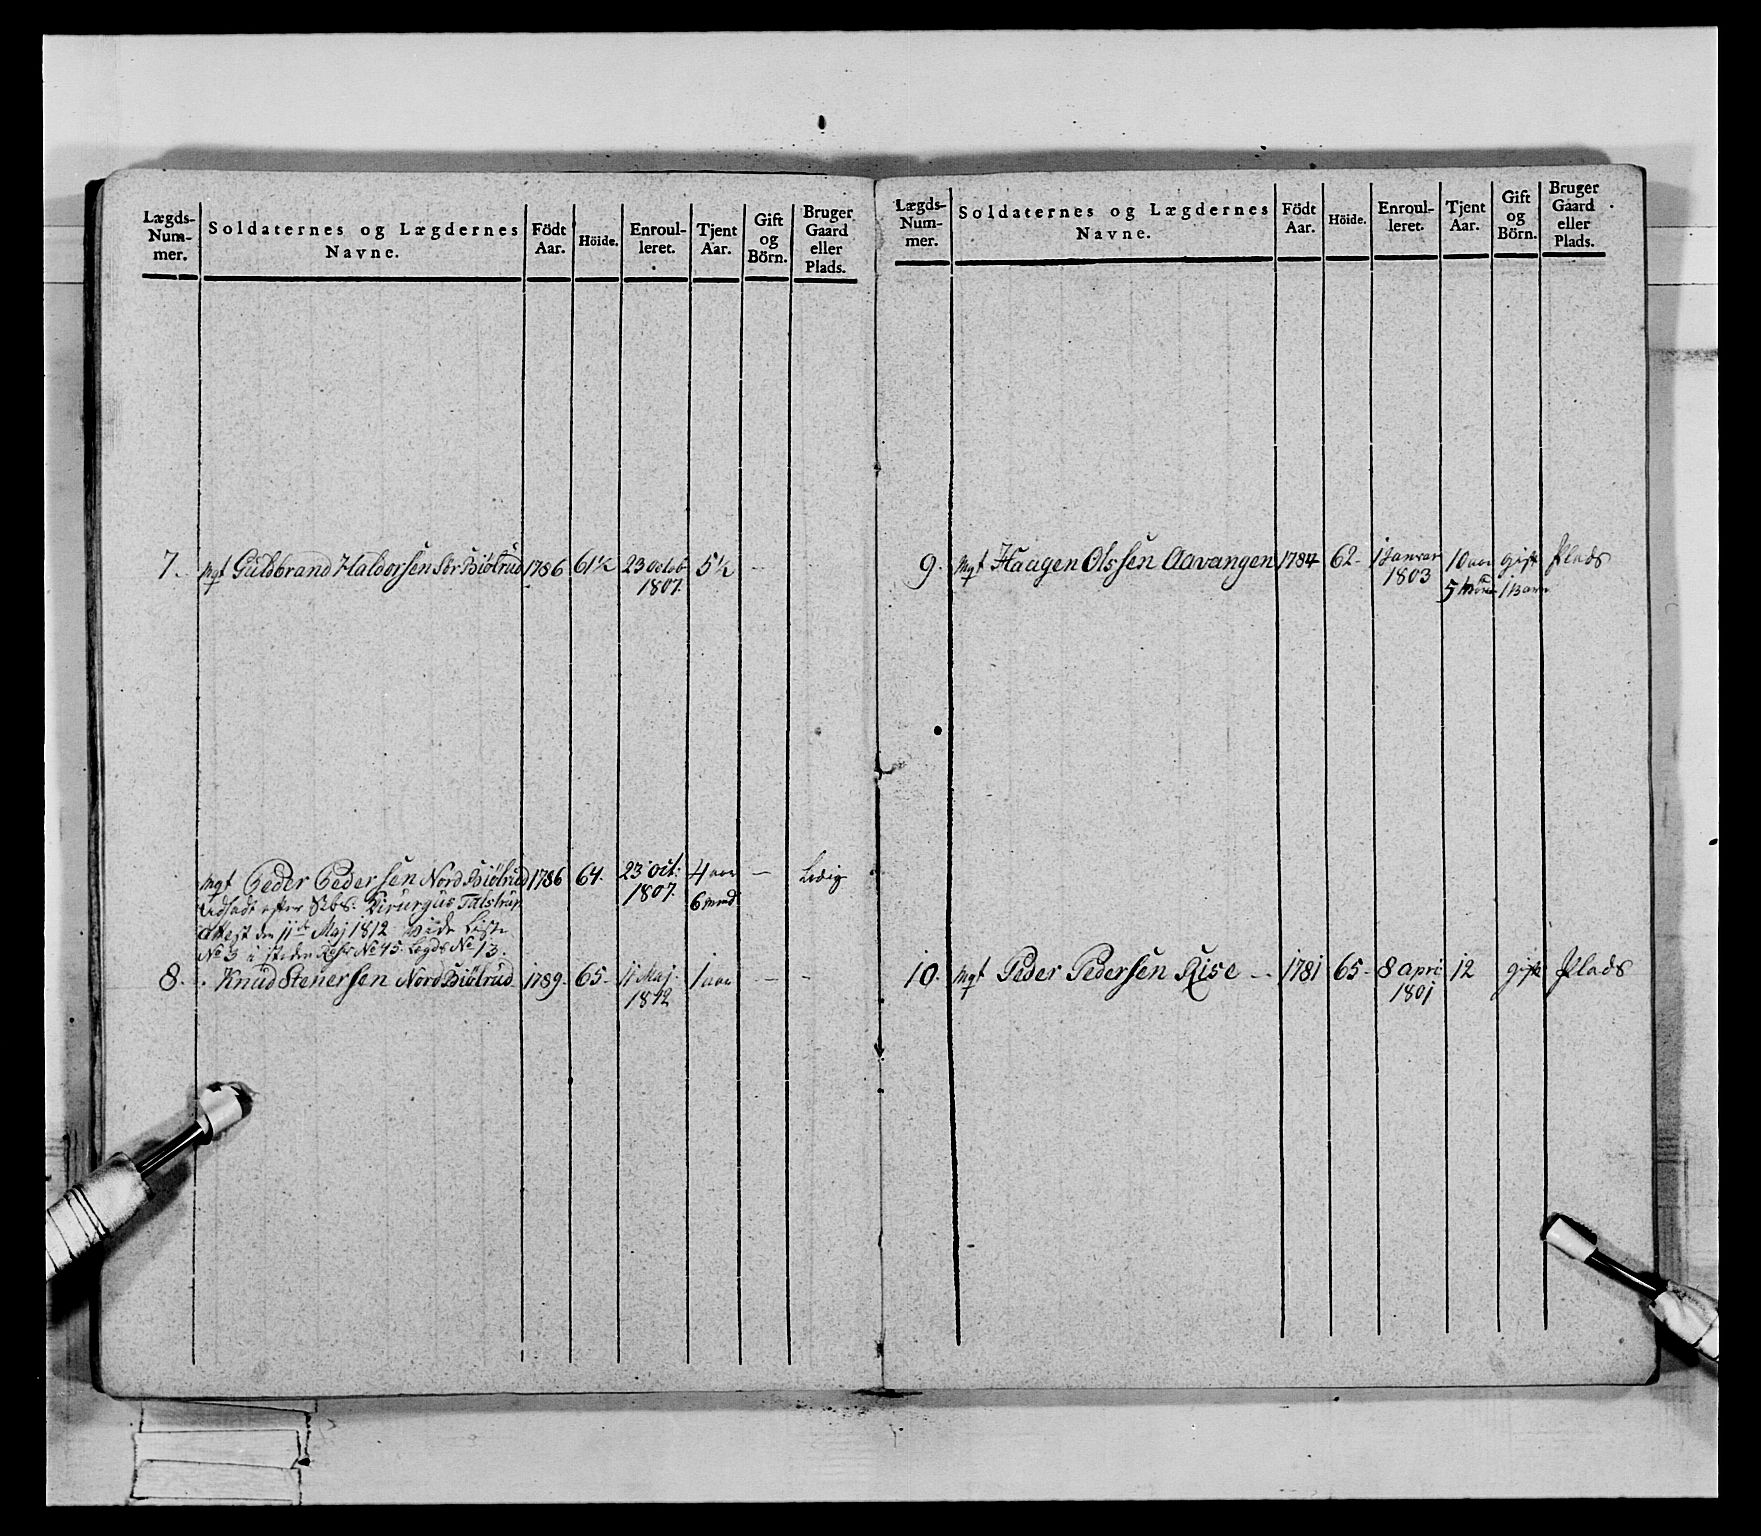 Lægds-Num-mer.
Soldaternes og Lægdernes Navne.
Födt Aar.
Höide.
Enroul-leret.
Tjent Aar.
Gift og Börn.
Bruger Gaard eller Plads.
7. Mqt Guldbrand Haldorsen Sör Biölrud 1786 61½ 23 octob 5½
1807.
Mqt Peder Pedersen Nord Biölrud 1786 64. 23 oct: 4 aar — Ledig
1807. 6 mnd
Udsadt efter
attest den 11te Maj 1812 Vide Liste
No 3 i steden No 45. Legds No 13.
8. Knud Stenersen Nord Biölrud 1789. 65. 11 Maj 1 aar — —
1812
Lægds-Num-mer.
Soldaternes og Lægdernes Navne.
Födt Aar.
Höide.
Enroul-leret.
Tjent Aar.
Gift og Börn.
Bruger Gaard eller Plads.
9. Mqt Haagen Olssen Aavangen 1784 62. 1 Januar 10 aar gift Plads
1803 5 1 Barn
10. Mqt Peder Pedersen Rise — 1781 65. 8 April 12 gift Plads
1801